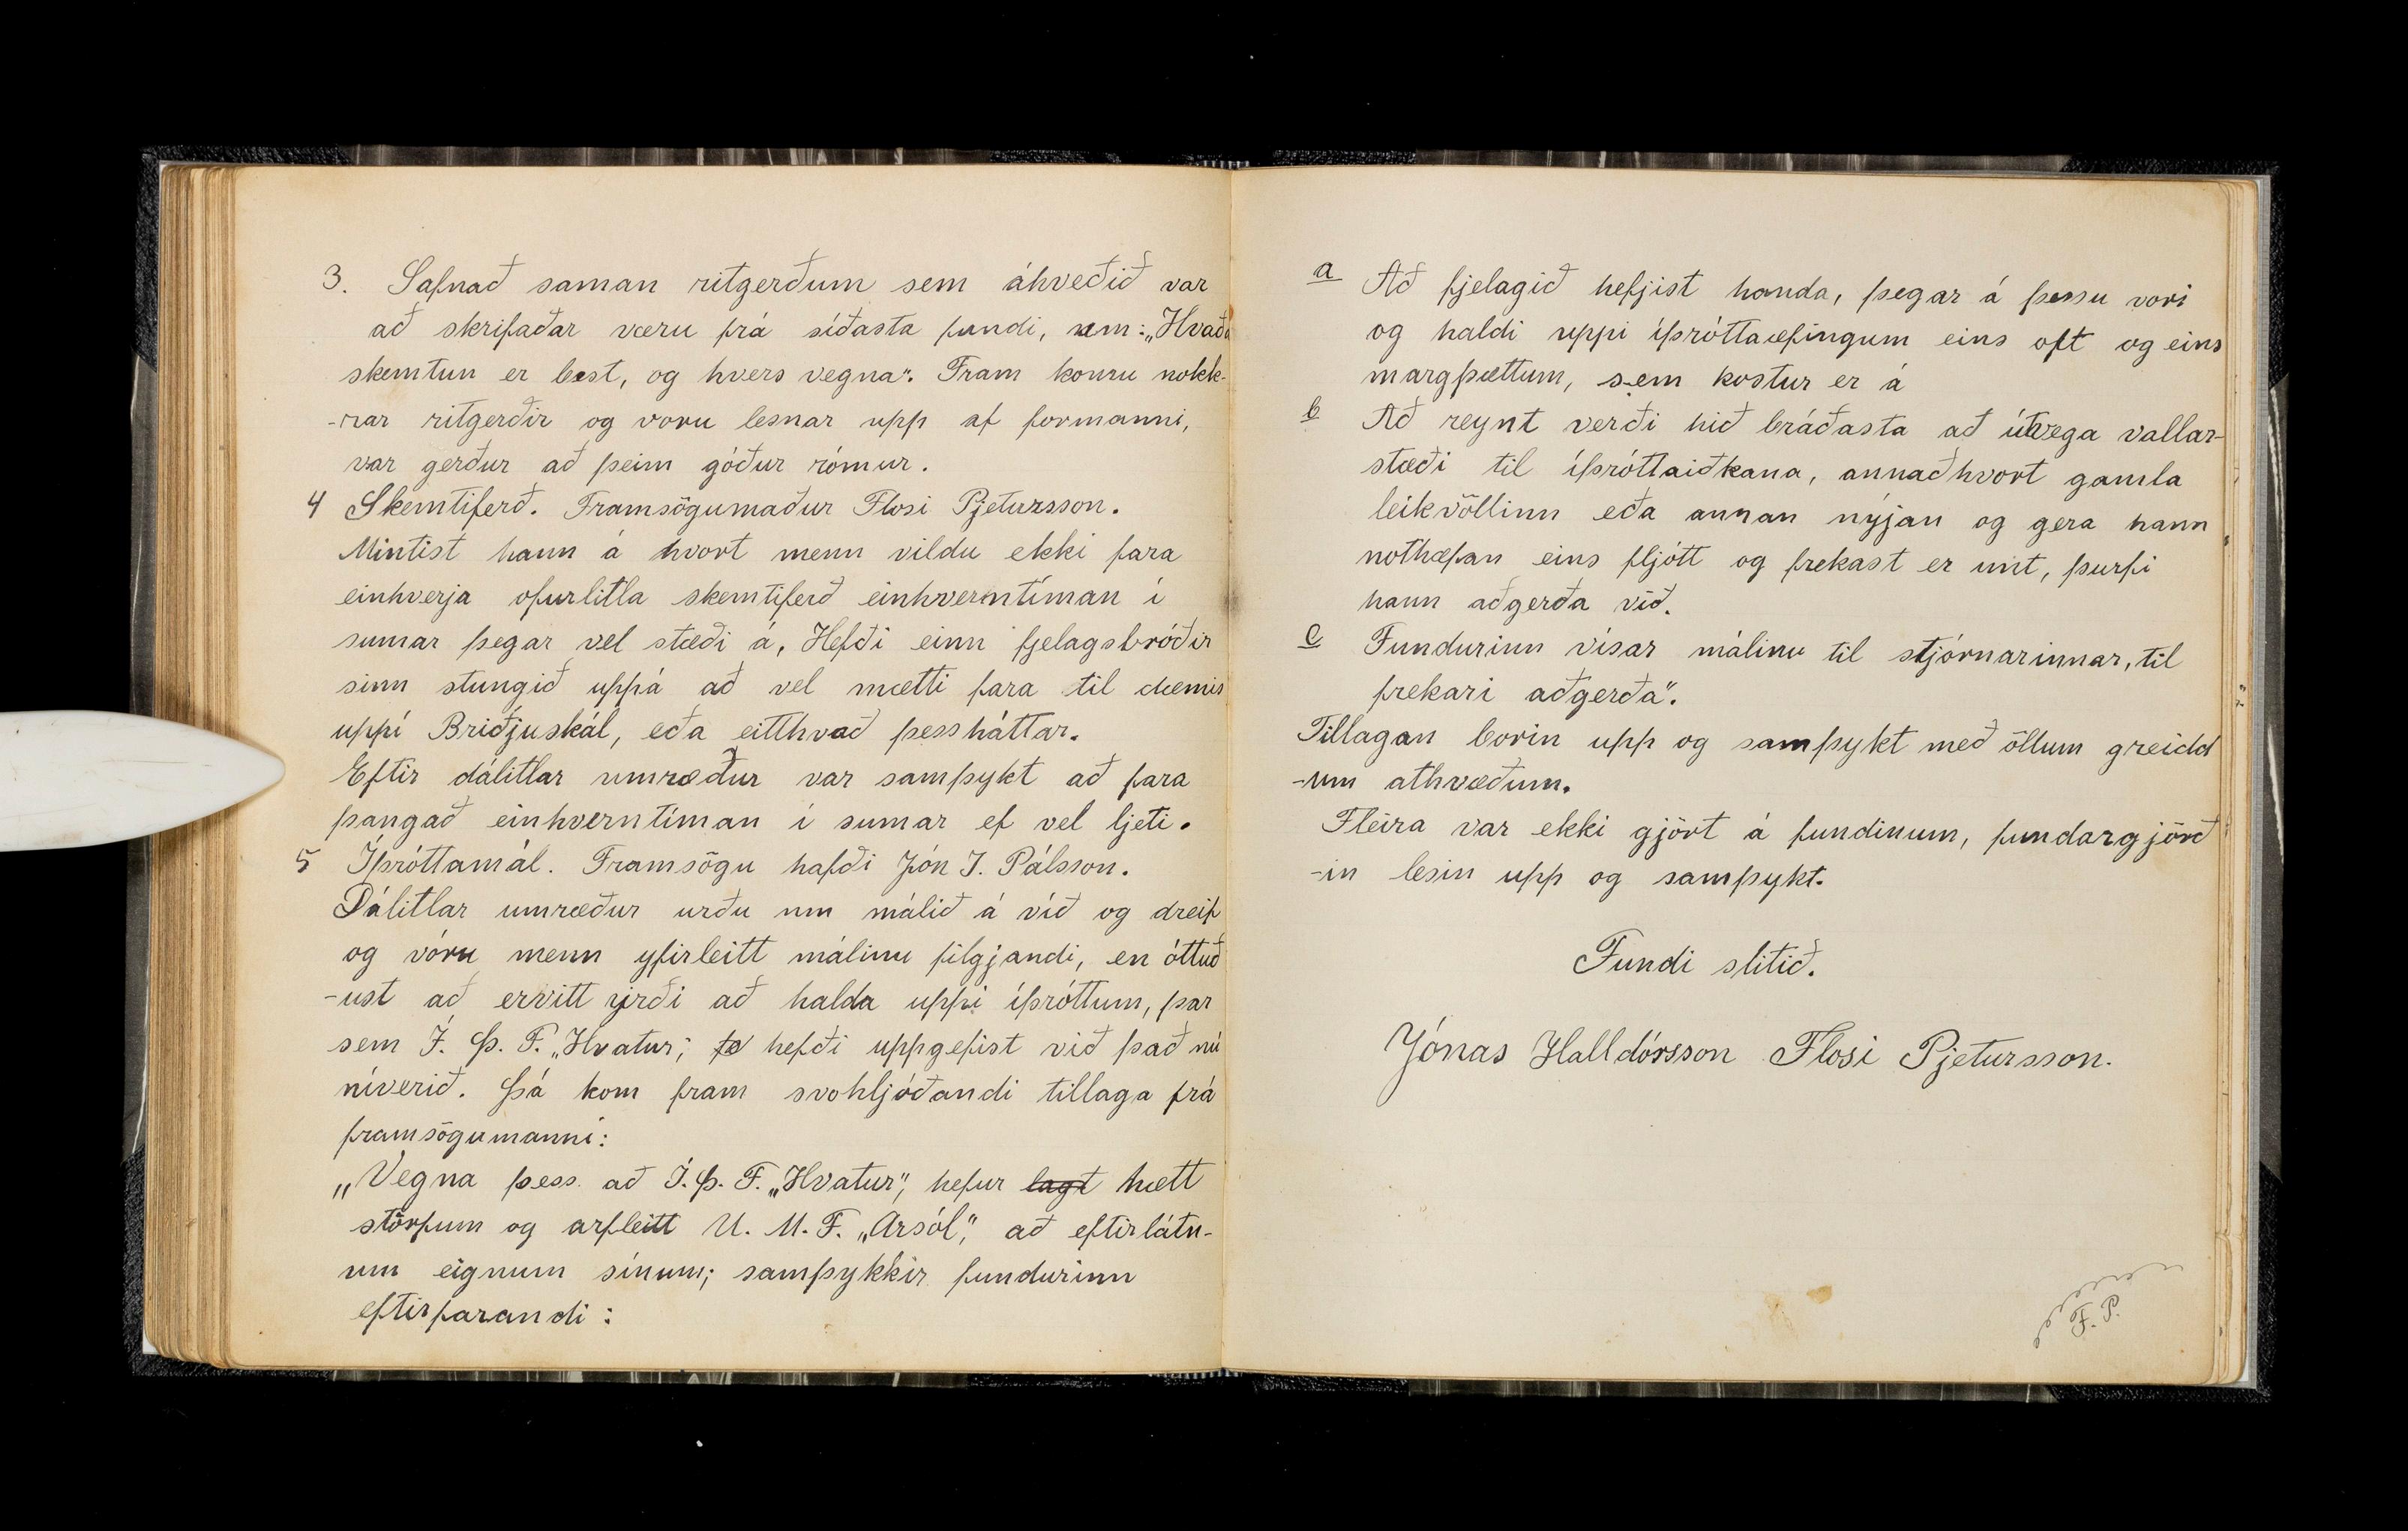 3. Safnað saman ritgerðum sem ákveðið var
að skrifaðar væru frá síðasta fundi, um: „Hvaða
skemtun er best, og hvers vegna". Fram komu nokk-
-rar ritgerðir og voru lesnar upp af formanni,
var gerður að þeim góður rómur.
4 Skemtiferð. Framsögumaður Flosi Pjetursson.
Mintist hann á hvort menn vildu ekki fara
einhverja ofurlitla skemtiferð einhverntíman í
sumar þegar vel stæði á, Hefði einn fjelagsbróðir
sinn stungið uppá að vel mætti fara til dæmis
uppí Briðjuskál, eða eitthvað þessháttar.
Eftir dálitlar umræður var samþykt að fara
þangað einhverntíman í sumar ef vel ljeti.
5 Íþróttamál. Framsögu hafði Jón I. Pálsson.
Dálitlar umræður urðu um málið á víð og dreif
og vóru menn yfirleitt málinu filgjandi, en óttuð
-ust að ervitt yrði að halda uppi íþróttum, þar
sem Í. Þ. F. „Hvatur", hefði uppgefist við það nú
níverið. Þá kom fram svohljóðandi tillaga frá
framsögumanni:
„Vegna þess að Í. Þ. F. „Hvatur", hefur lagt hætt
störfum og arfleitt U. M. F. „Arsól", að eftirlátn-
um eignum sínum; samþykkir fundurinn
eftirfarandi:
a Að fjelagið hefjist handa, þegar á þessu vori
og haldi uppi íþróttaæfingum eins oft og eins
margþættum, sem kostur er á
b Að reynt verði hið bráðasta að útvega vallar-
stæði til íþróttaiðkana, annaðhvort gamla
leikvöllinn eða annan nýjan og gera hann
nothæfan eins fljótt og frekast er unt, þurfi
hann aðgerða við.
c Fundurinn vísar málinu til stjórnarinnar, til
frekari aðgerða".
Tillagan borin upp og samþykt með öllum greidd
-um athvæðum.
Fleira var ekki gjört á fundinum, fundargjörð
-in lesin upp og samþykt.
Fundi slitið.
Jónas Halldórsson Flosi Pjetursson.
F. P.